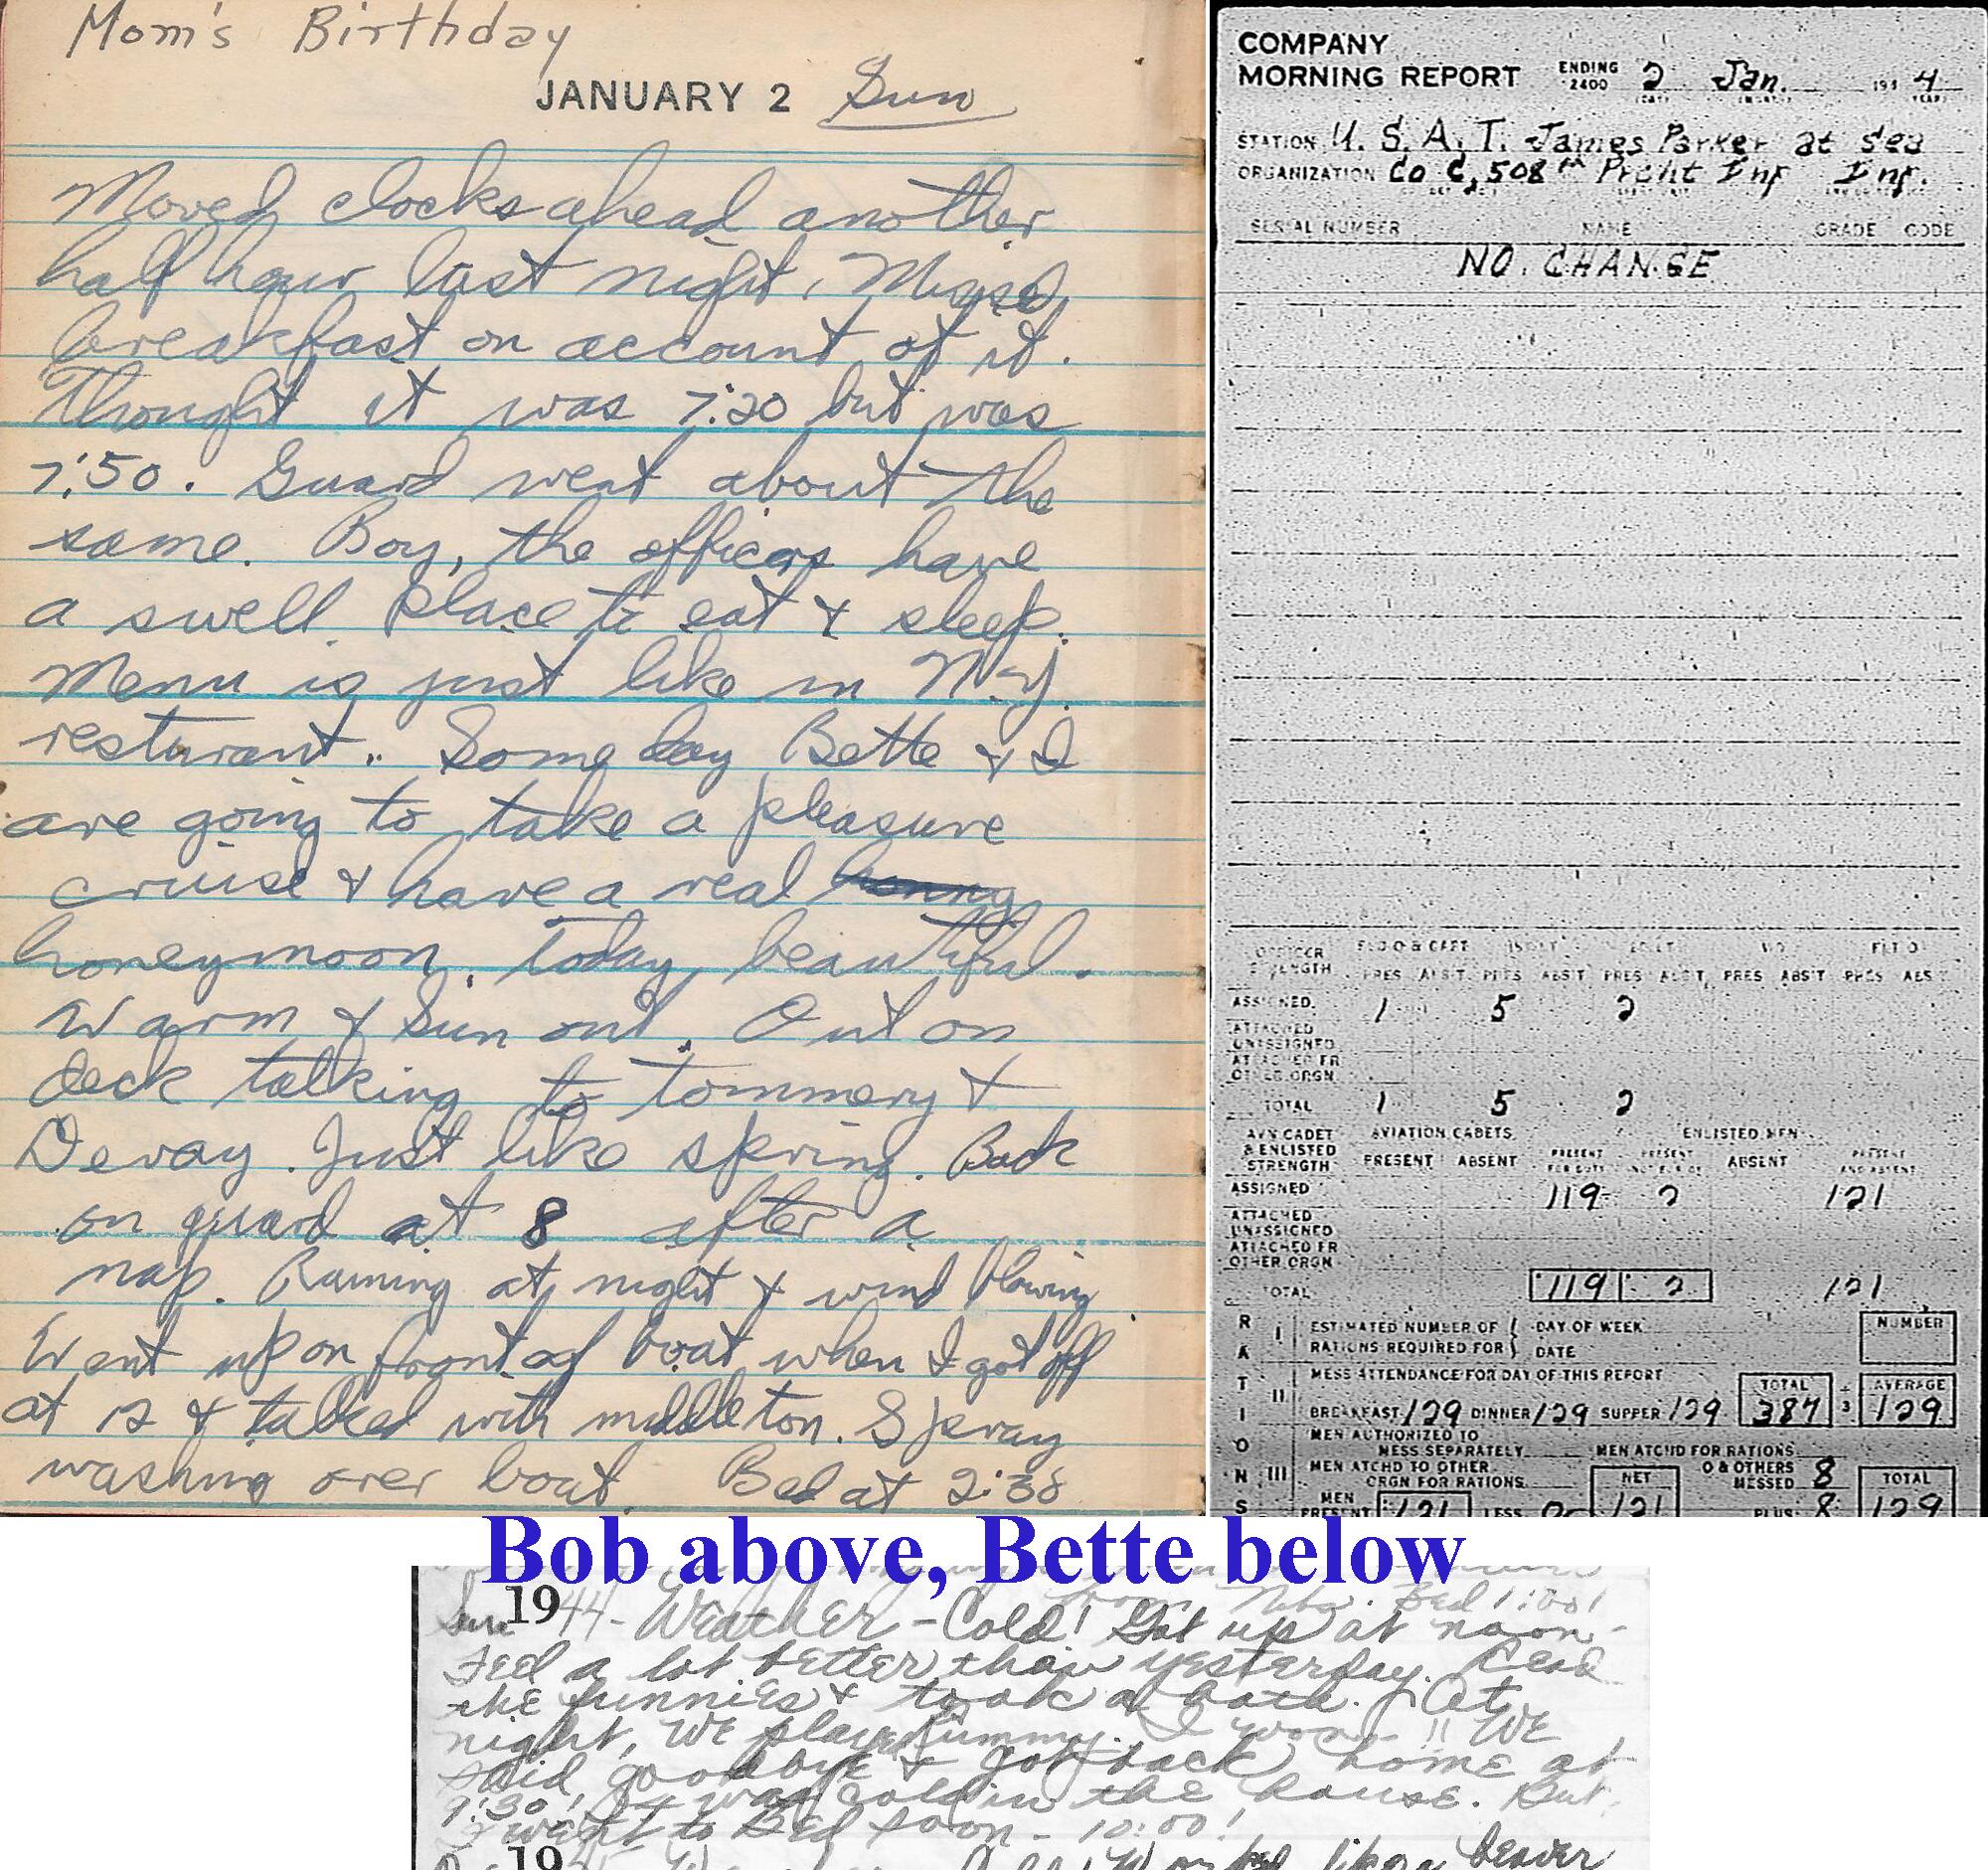 Mom's Birthday
JANUARY 2 Sun
Moved clocks ahead another
half hour last night. Missed
breakfast on account of it.
Thought it was 7:20 but was
7:50. Guard went about the
same. Boy, the officers have
a swell place to eat & sleep.
Menu is just like in N.Y.
resturant. Some day Bette & I
are going to take a pleasure
cruise & have a real
honeymoon. Today beautiful.
Warm & Sun out. Out on
deck talking to Tommery &
Devay. Just like spring. Back
on guard at 8 after a
nap. Raining at night & wind blowing.
Went up on front of boat when I got off
at 12 & talked with middleton. Spray
washing over boat. Bed at 2:30
COMPANY
MORNING REPORT ENDING 2400 2 Jan. 1944
STATION U. S. A. T. James Parker at Sea
ORGANIZATION Co C, 508th Prcht Inf Inf.
SERIAL NUMBER NAME GRADE CODE
NO. CHANGE
OFFICER STRENGTH
PRES ABS'T PRES ABS'T PRES ABS'T PRES ABS'T PRES ABS'T
ASSIGNED 1 5 2
ATTACHED
UNASSIGNED
ATTACHED FR
OTHER ORGN
TOTAL 1 5 2
AVN CADET & ENLISTED STRENGTH AVIATION CADETS ENLISTED MEN
PRESENT ABSENT PRESENT FOR DUTY PRESENT NOT FOR DUTY ABSENT PRESENT AND ABSENT
ASSIGNED 119 2 121
ATTACHED
UNASSIGNED
ATTACHED FR
OTHER ORGN
TOTAL 119 2 121
RATIONS
I ESTIMATED NUMBER OF RATIONS REQUIRED FOR DAY OF WEEK DATE NUMBER
II MESS ATTENDANCE FOR DAY OF THIS REPORT TOTAL ÷ AVERAGE
BREAKFAST 129 DINNER 129 SUPPER 129 387 3 129
III MEN AUTHORIZED TO MESS SEPARATELY MEN ATCHD FOR RATIONS
MEN ATCHD TO OTHER ORGN FOR RATIONS O & OTHERS MESSED 8
MEN PRESENT 121 LESS 0 NET 121 PLUS 8 TOTAL 129
Bob above, Bette below
Bed 1:00!
Sun 1944 - Weather - Cold! Got up at noon -
Feel a lot better than yesterday. Read
the funnies & took a bath. At
night, we played rummy. I won - !! We
said goodbye & got back home at
9:30! It was cold in the house. But
I went to Bed soon - 10:00!
19
like a beaver